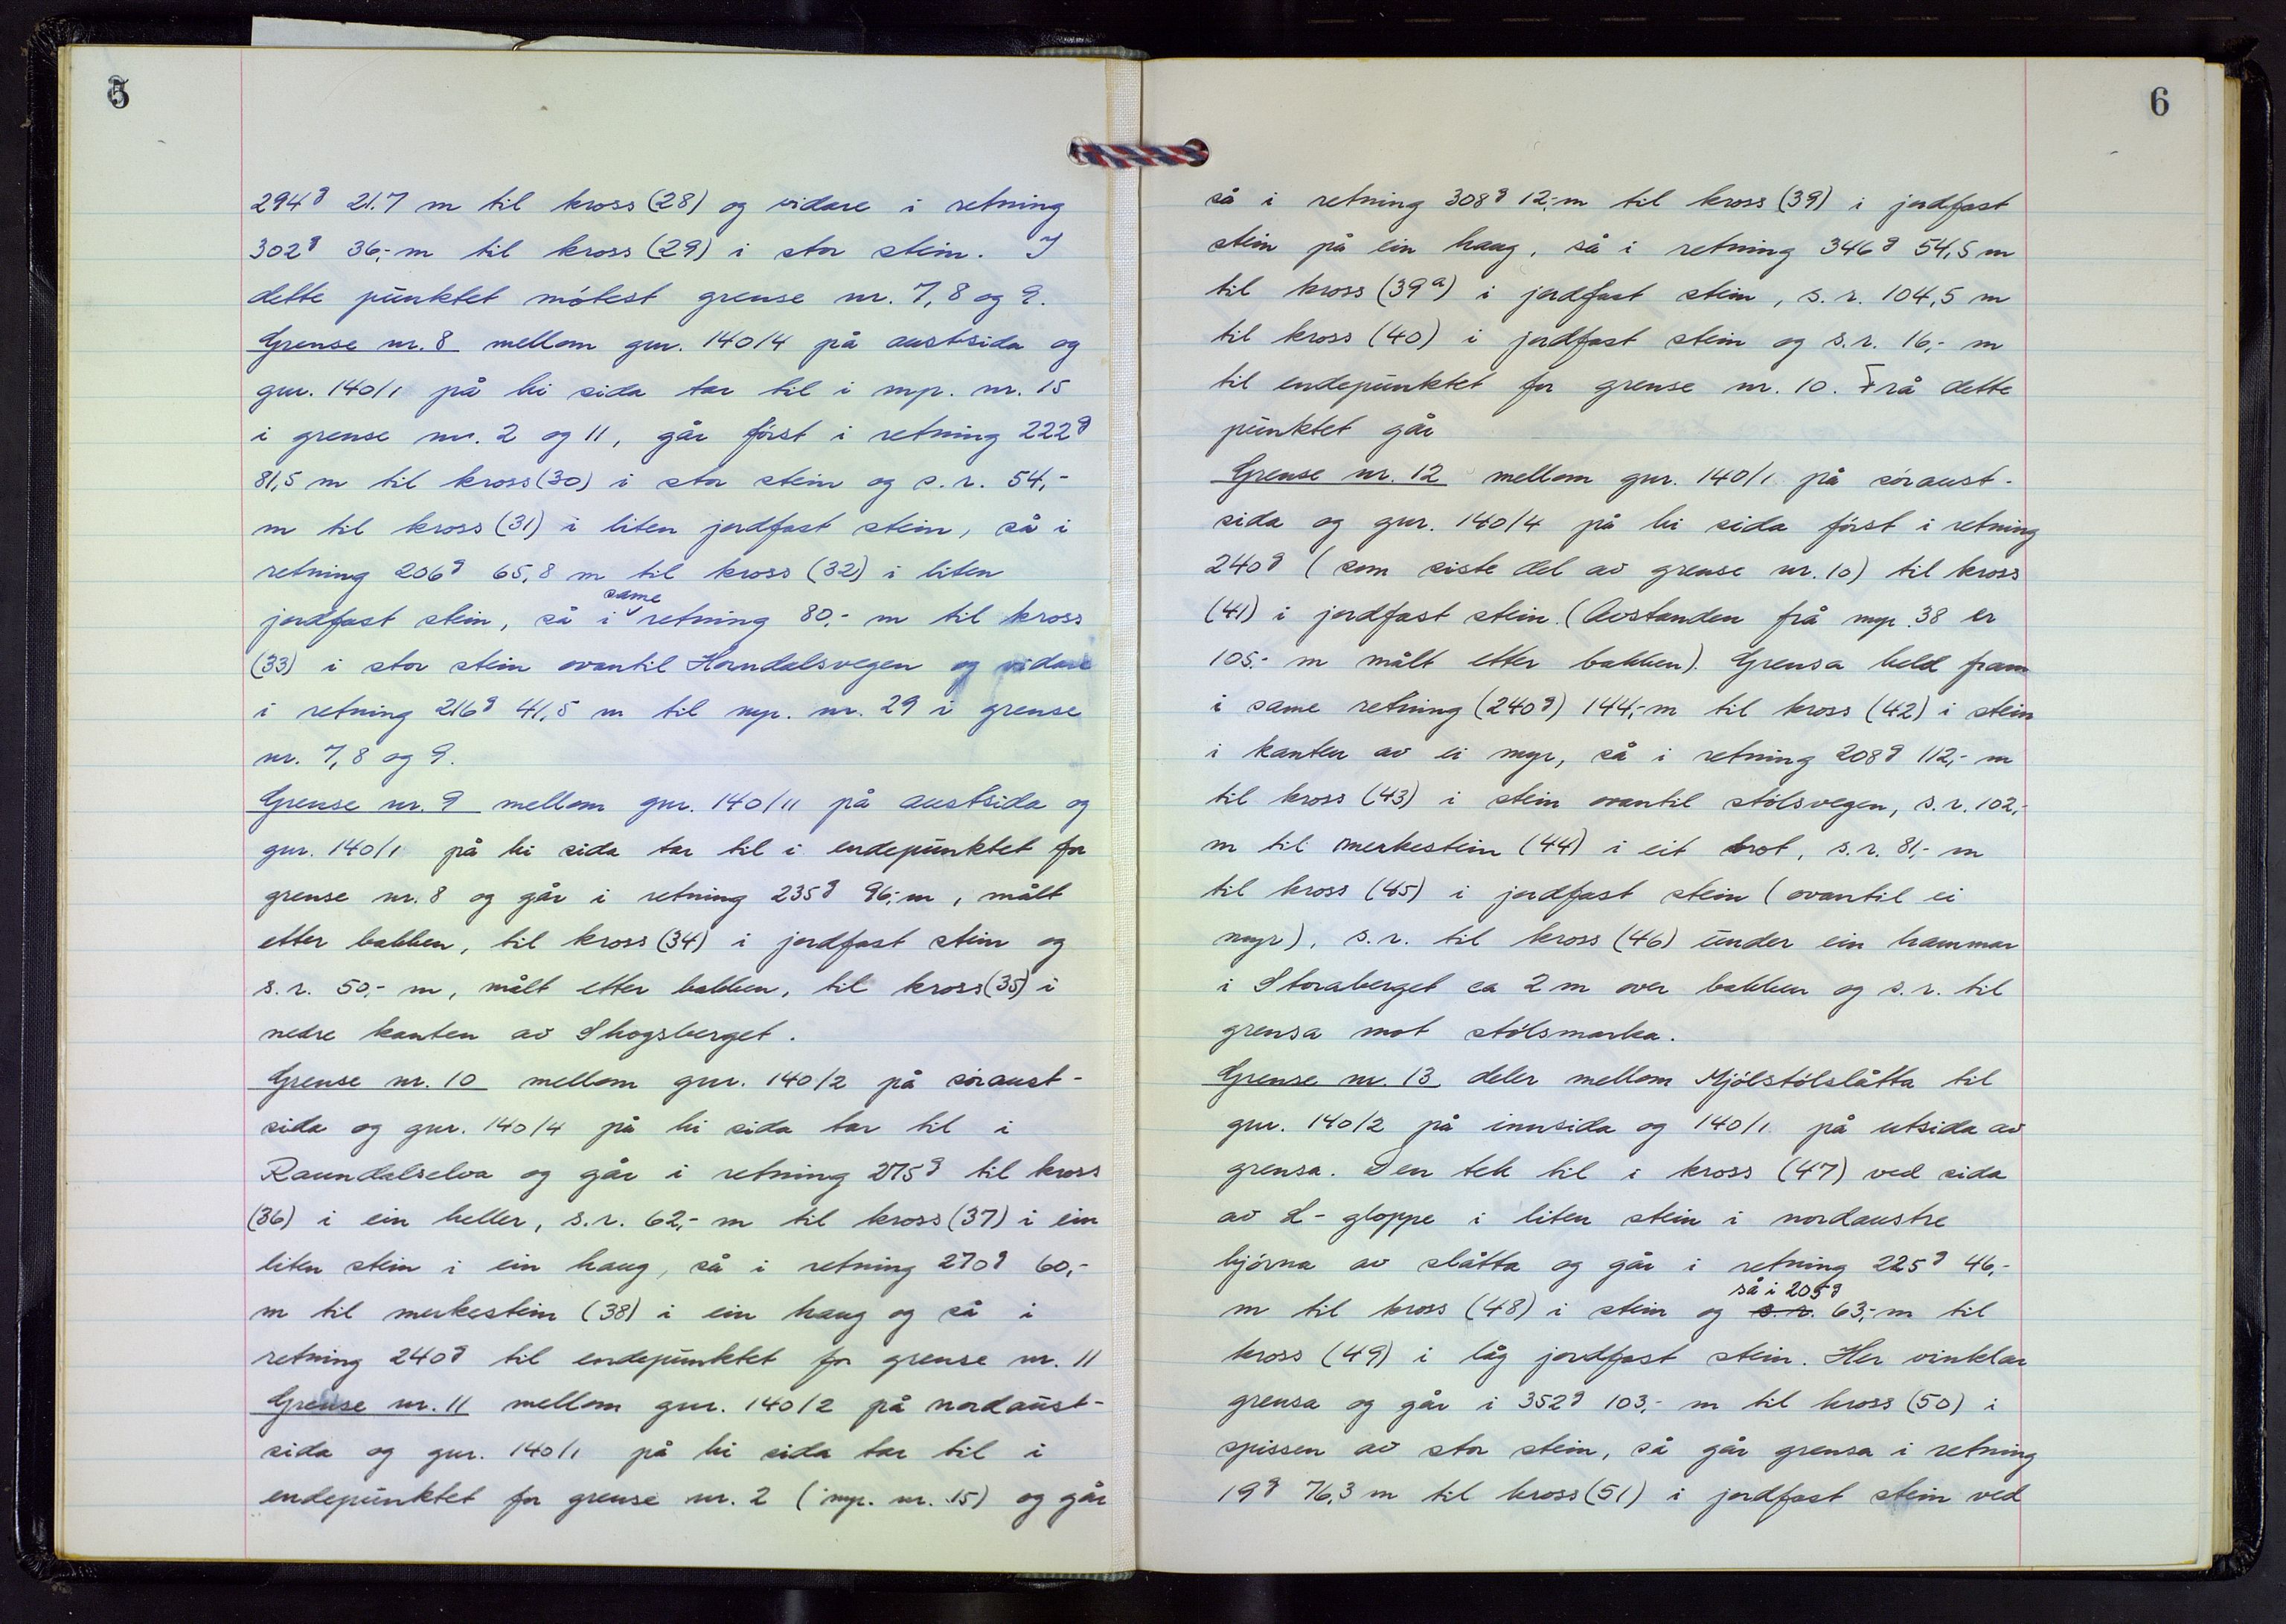 5
294g 21.7 m til kross (28) og vidare i retning
302g 36,- m til kross (29) i stor stein. I
dette punktet møtest grense nr. 7, 8 og 9.
Grense nr. 8 mellom gnr. 140/4 på austsida og
gnr. 140/1 på hi sida tar til i mp. nr. 15
i grense nr. 2 og 11, går først i retning 222g
81,5 m til kross (30) i stor stein og s.r. 54,-
m til kross (31) i liten jordfast stein, så i
retning 206g 65,8 m til kross (32) i liten
jordfast stein, så i same retning 80,- m til kross
(33) i stor stein ovantil Horndalsvegen og vidare
i retning 216g 41,5 m til mp. nr. 29 i grense
nr. 7, 8 og 9.
Grense nr. 9 mellom gnr. 140/11 på austsida og
gnr. 140/1 på hi sida tar til i endepunktet for
grense nr. 8 og går i retning 235g 96,- m, målt
etter bakken, til kross (34) i jordfast stein og
s.r. 50,- m, målt etter bakken, til kross (35) i
nedre kanten av Skogsberget.
Grense nr. 10 mellom gnr. 140/2 på søraust-
sida og gnr. 140/4 på hi sida tar til i
Raundalselva og går i retning 275g til kross
(36) i ein heller, s.r. 62,- m til kross (37) i ein
liten stein i ein haug, så i retning 270g 60,-
m til merkestein (38) i ein haug og så i
retning 240g til endepunktet for grense nr. 11
Grense nr. 11 mellom gnr. 140/2 på nordaust-
sida og gnr. 140/1 på hi sida tar til i
endepunktet for grense nr. 2 (mp. nr. 15) og går
6
så i retning 308g 12,- m til kross (39) i jordfast
stein på ein haug, så i retning 346g 54,5 m
til kross (39a) i jordfast stein, s.r. 104,5 m
til kross (40) i jordfast stein og s.r. 16,- m
til endepunktet for grense nr. 10. Frå dette
punktet går
Grense nr. 12 mellom gnr. 140/1 på søraust-
sida og gnr. 140/4 på hi sida først i retning
240g (som siste del av grense nr. 10) til kross
(41) i jordfast stein. (Avstanden frå mp. 38 er
105,- m målt etter bakken). Grensa held fram
i same retning (240g) 144,- m til kross (42) i stein
i kanten av ei myr, så i retning 208g 112,- m
til kross (43) i stein ovantil stølsvegen, s.r. 102,-
m til merkestein (44) i eit brot, s.r. 81,- m
til kross (45) i jordfast stein (ovantil ei
myr), s.r. til kross (46) under ein hammar
i Storaberget ca 2 m over bakken og s.r. til
grensa mot stølsmarka.
Grense nr. 13 deler mellom Mjølstølslåtta til
gnr. 140/2 på innsida og 140/1 på utsida av
grensa. Den tek til i kross (47) ved sida
av L-gloppe i liten stein i nordaustre
hjørna av slåtta og går i retning 225g 46,-
m til kross (48) i stein og s.r. så i 205g 63,- m til
kross (49) i låg jordfast stein. Her vinklar
grensa og går i 352g 103,- m til kross (50) i
spissen av stor stein, så går grensa i retning
19g 76,3 m til kross (51) i jordfast stein ved